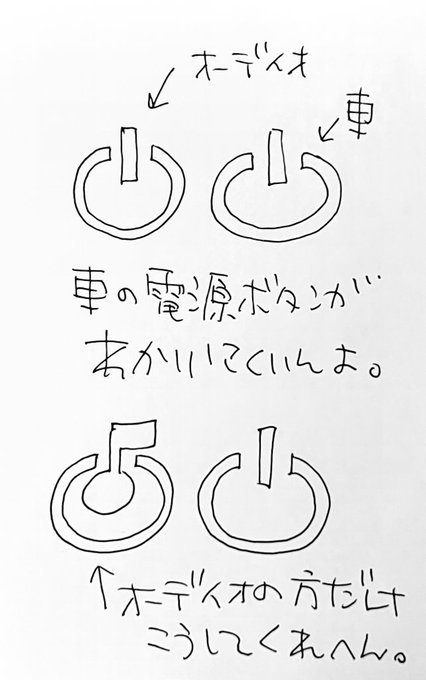 オーディオ
車
車の電源ボタンが
わかりにくいんよ。
オーディオの方だけ
こうしてくれへん。